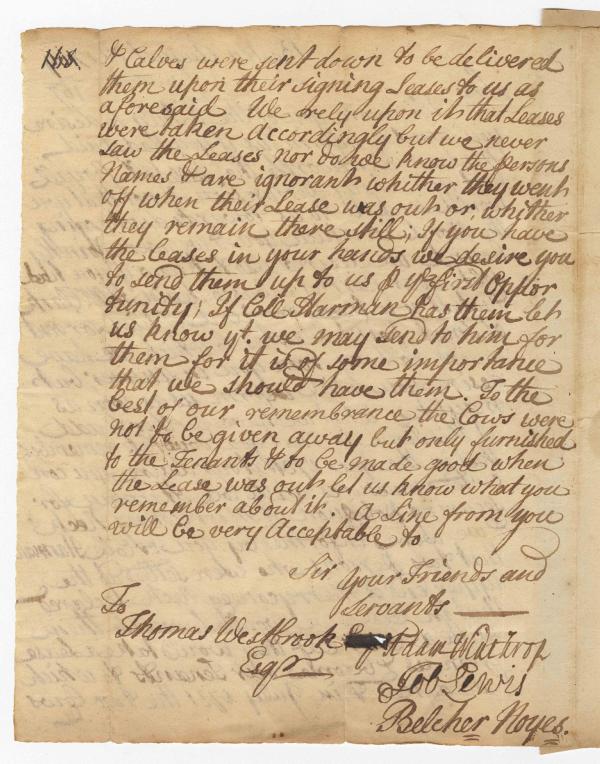 & Calves were sent down to be delivered
them upon their signing Leases to us as
aforesaid We rely upon it that Leases
were taken Accordingly but we never
saw the Leases nor do we know the persons
Names & are ignorant whether they went
off when their Lease was out or whether
they remain there still; If you have
the leases in your hands we desire you
to send them up to us p ye first Oppor
tunity; If Coll Harman has them let
us know yt. we may send to him for
them for it is of some importance
that we should have them. To the
best of our remembrance the Cows were
not to be given away but only furnished
to the Tenants & to be made good when
the Lease was out let us know what you
remember about it. A Line from you
will be very Acceptable to
Sir
Your Friends and
Servants
To
Thomas Westbrook
Esqr
Adam Winthrop
Job Lewis
Belcher Noyes.